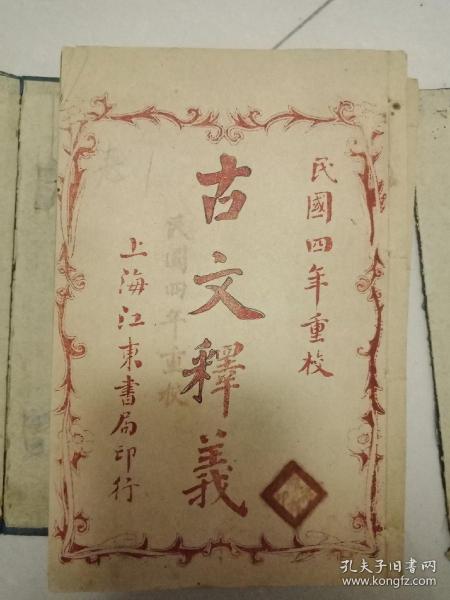 民國四年重校
古文釋義
上海江東書局印行
民國四年重校
孔夫子旧书网
www.kongfz.com